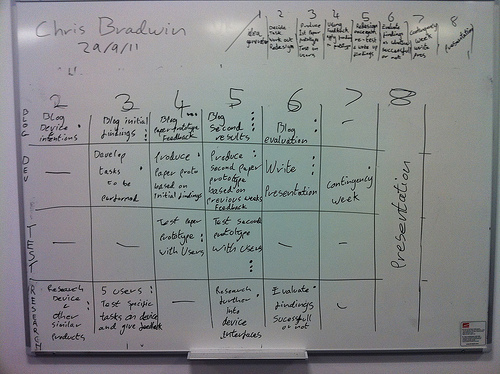 Chris Bradwin
29/9/11
1 2 3 4 5 6 7 8
Contingency
Week
Presentation
2 3 4 5 6 7 8
BLOG
Blog
Device
intentions
Blog initial
findings
Blog
Paper prototype
Feedback
Blog
Second
results
Blog
evaluation
DEV
Develop
tasks
to be
performed
Produce
Paper proto
based on
Initial findings
Produce
second paper
prototype
based on
previous weeks
Feedback
Write
Presentation
Contingency
week
Presentation
TEST
Test Paper
Prototype
with Users
Test second
prototype
with Users
RESEARCH
Research
Device
&
other
similar
Products
5 users
Test specific
tasks on device
and give feedback
Research
further
into
device
interfaces
Evaluate
findings
Sucessfull
or not